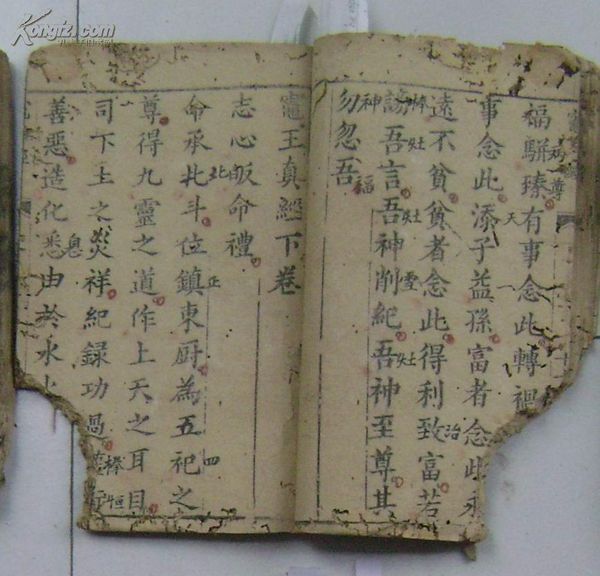 Kongfz.com
福駢臻有事念此轉禍
事念此添子益孫富者念此永
遠不貧貧者念此得利致富若
謗吾言吾神削紀吾神至尊其
勿忽吾
竈王真經下卷
志心皈命禮
命承北斗位鎮東厨為五祀之
尊得九靈之道作上天之耳目
司下土之災祥紀録功過
善惡造化悉由於水火